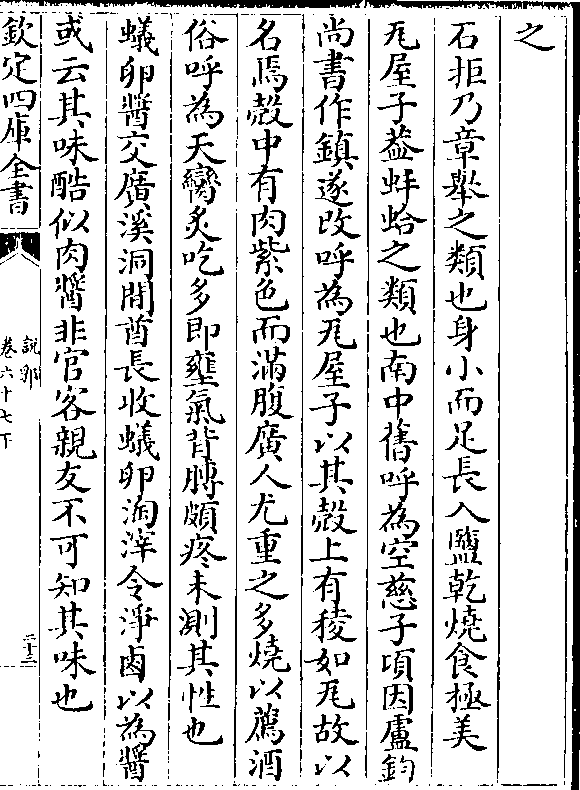 之
石拒乃章舉之類也身小而足長入鹽乾燒食極美
瓦屋子葢蚌蛤之類也南中舊呼為空慈子頃因盧鈞
尚書作鎮遂改呼為瓦屋子以其殼上有稜如瓦故以
名焉殼中有肉紫色而滿腹廣人尤重之多燒以薦酒
俗呼為天臠炙吃多即壅氣背膊頗疼未測其性也
蟻卵醬交廣溪洞間酋長收蟻卵淘滓令淨鹵以為醬
或云其味酷似肉醬非官客親友不可知其味也
欽定四庫全書
說郛
卷六十七下
二十三